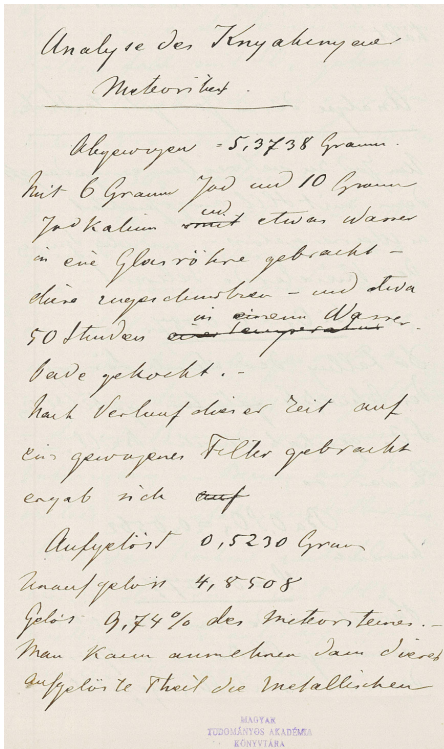 Analyse des Knyahinyaer
Meteoriten.
Abgewogen = 5,3738 Gramm.
Mit 6 Gramm Jod und 10 Gramm
und
Jodkalium ~~mit~~ etwas Wasser
in eine Glasröhre gebracht –
diese zugeschmolzen – und etwa
in einem Wasser-
50 Stunden ~~einer Temperatur~~
bade gekocht. –
Nach Verlauf dieser Zeit auf
ein gewogenes Filter gebracht
ergab sich ~~auf~~
Aufgelöst 0,5230 Gram
Unaufgelöst 4,8508
Gelöst 9,74% des Meteorsteines. –
Man kann annehmen dass dieser
aufgelöste Theil die Metallischen
MAGYAR
TUDOMÁNYOS AKADÉMIA
KÖNYVTÁRA